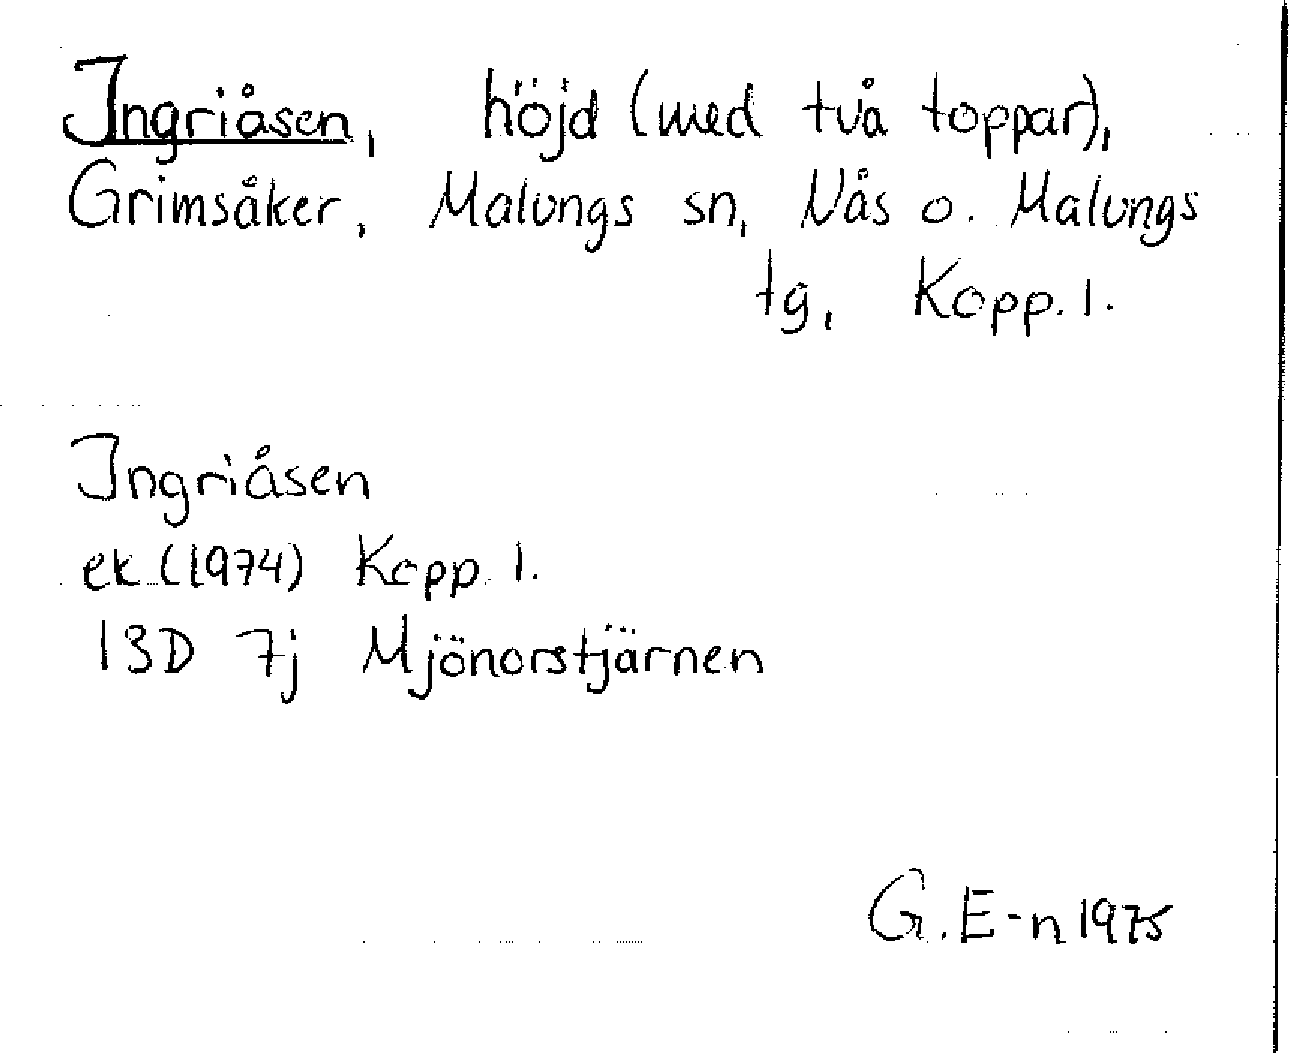 Ingriåsen, höjd (med två toppar),
Grimsåker, Malungs sn, Nås o. Malungs
tg, Kopp. l.
Ingriåsen
ek (1974) Kopp. l.
13D 7j Mjönorstjärnen
G. E-n 1975